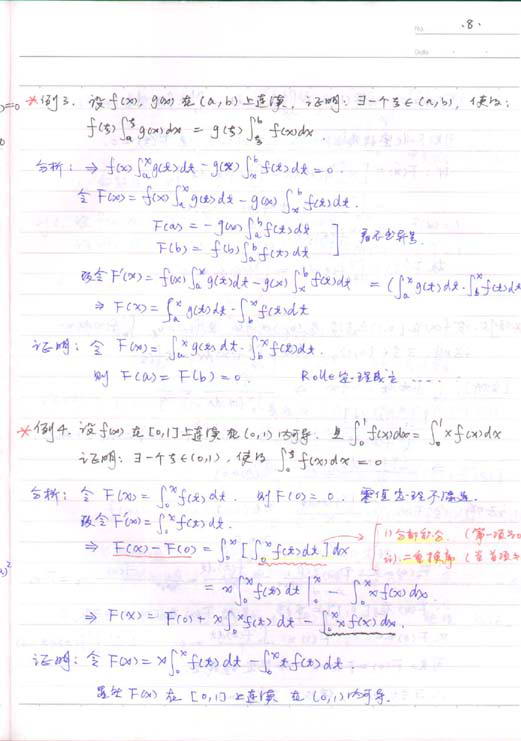 No. ·8·
Date · ·
)=0 *例3. 设 f(x), g(x) 在 (a,b) 上连续, 证明: ∃一个ξ∈(a,b), 使得:
f(ξ)∫_a^ξ g(x)dx = g(ξ)∫_ξ^b f(x)dx.
分析: ⇒ f(x)∫_a^x g(t)dt - g(x)∫_x^b f(t)dt = 0.
令 F(x) = f(x)∫_a^x g(t)dt - g(x)∫_x^b f(t)dt.
F(a) = -g(a)∫_a^b f(t)dt
F(b) = f(b)∫_a^b g(t)dt ] 看不出异号.
改令 F'(x) = f(x)∫_a^x g(t)dt - g(x)∫_x^b f(t)dt = (∫_a^x g(t)dt·∫_b^x f(t)dt
⇒ F(x) = ∫_a^x g(t)dt·∫_b^x f(t)dt
证明: 令 F(x) = ∫_a^x g(t)dt·∫_b^x f(t)dt.
则 F(a) = F(b) = 0. Rolle定理成立 ......
*例4. 设 f(x) 在 [0,1] 上连续 在 (0,1) 内可导. 且 ∫_0^1 f(x)dx = ∫_0^1 x f(x)dx
证明: ∃一个ξ∈(0,1), 使得 ∫_0^ξ f(x)dx = 0
分析: 令 F(x) = ∫_0^x f(t)dt. 则 F(0) = 0. 零值定理不满足.
改令 F'(x) = ∫_0^x f(t)dt.
⇒ F(x) - F(0) = ∫_0^x [∫_0^x f(t)dt] dx [ i) 分部积分. (第一项为0
ii). 二重换序 (
= x∫_0^x f(t)dt |_0^x - ∫_0^x x f(x)dx.
⇒ F(x) = F(0) + x∫_0^x f(t)dt - ∫_0^x x f(x)dx.
证明: 令 F(x) = x∫_0^x f(t)dt - ∫_0^x t f(t)dt.
显然 F(x) 在 [0,1] 上连续 在 (0,1) 内可导.